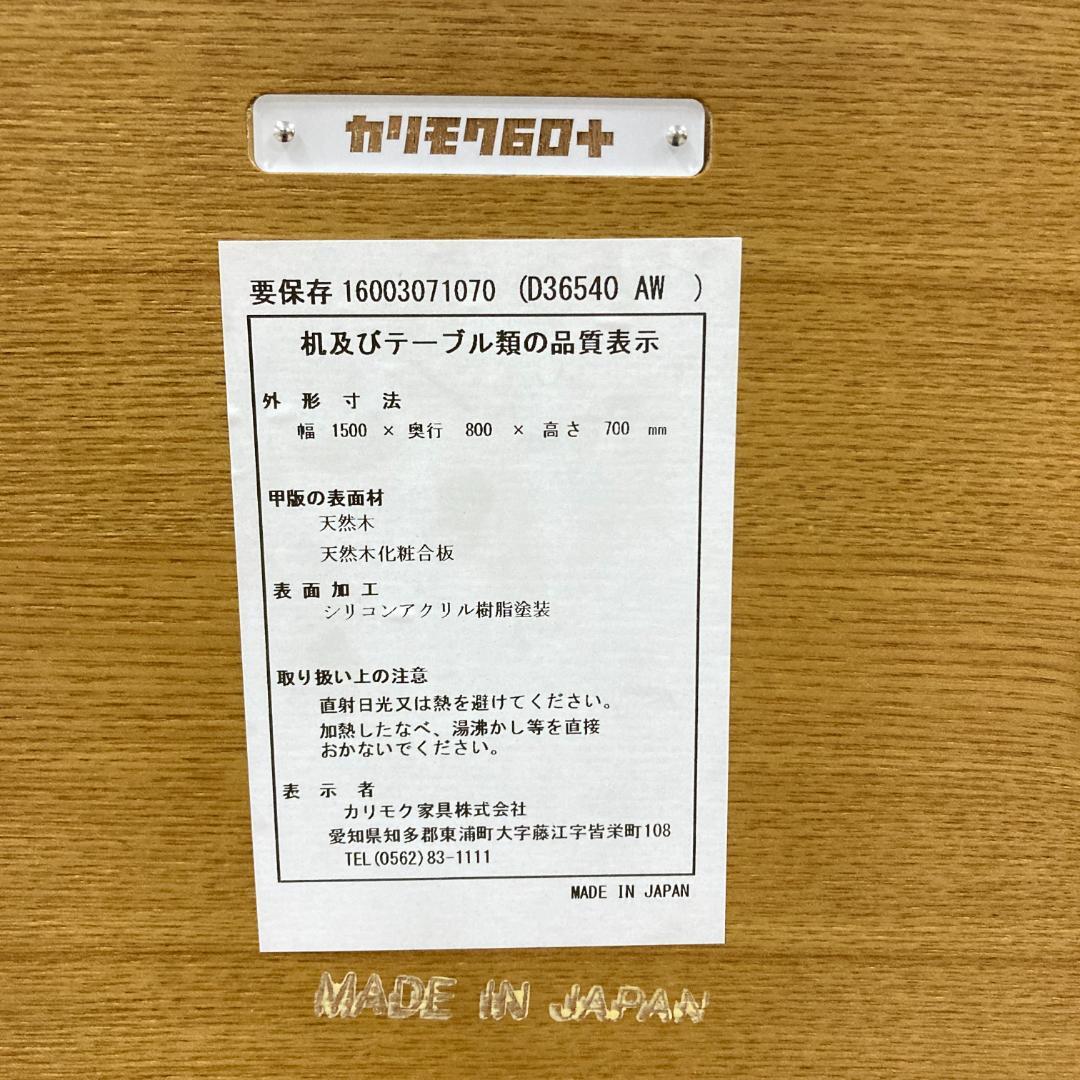 カリモク60+
要保存 16003071070 (D36540 AW )
机及びテーブル類の品質表示
外形寸法
幅 1500 × 奥行 800 × 高さ 700 mm
甲版の表面材
天然木
天然木化粧合板
表面加工
シリコンアクリル樹脂塗装
取り扱い上の注意
直射日光又は熱を避けてください。
加熱したなべ、湯沸かし等を直接
おかないでください。
表示者
カリモク家具株式会社
愛知県知多郡東浦町大字藤江字皆栄町108
TEL(0562)83-1111
MADE IN JAPAN
MADE IN JAPAN